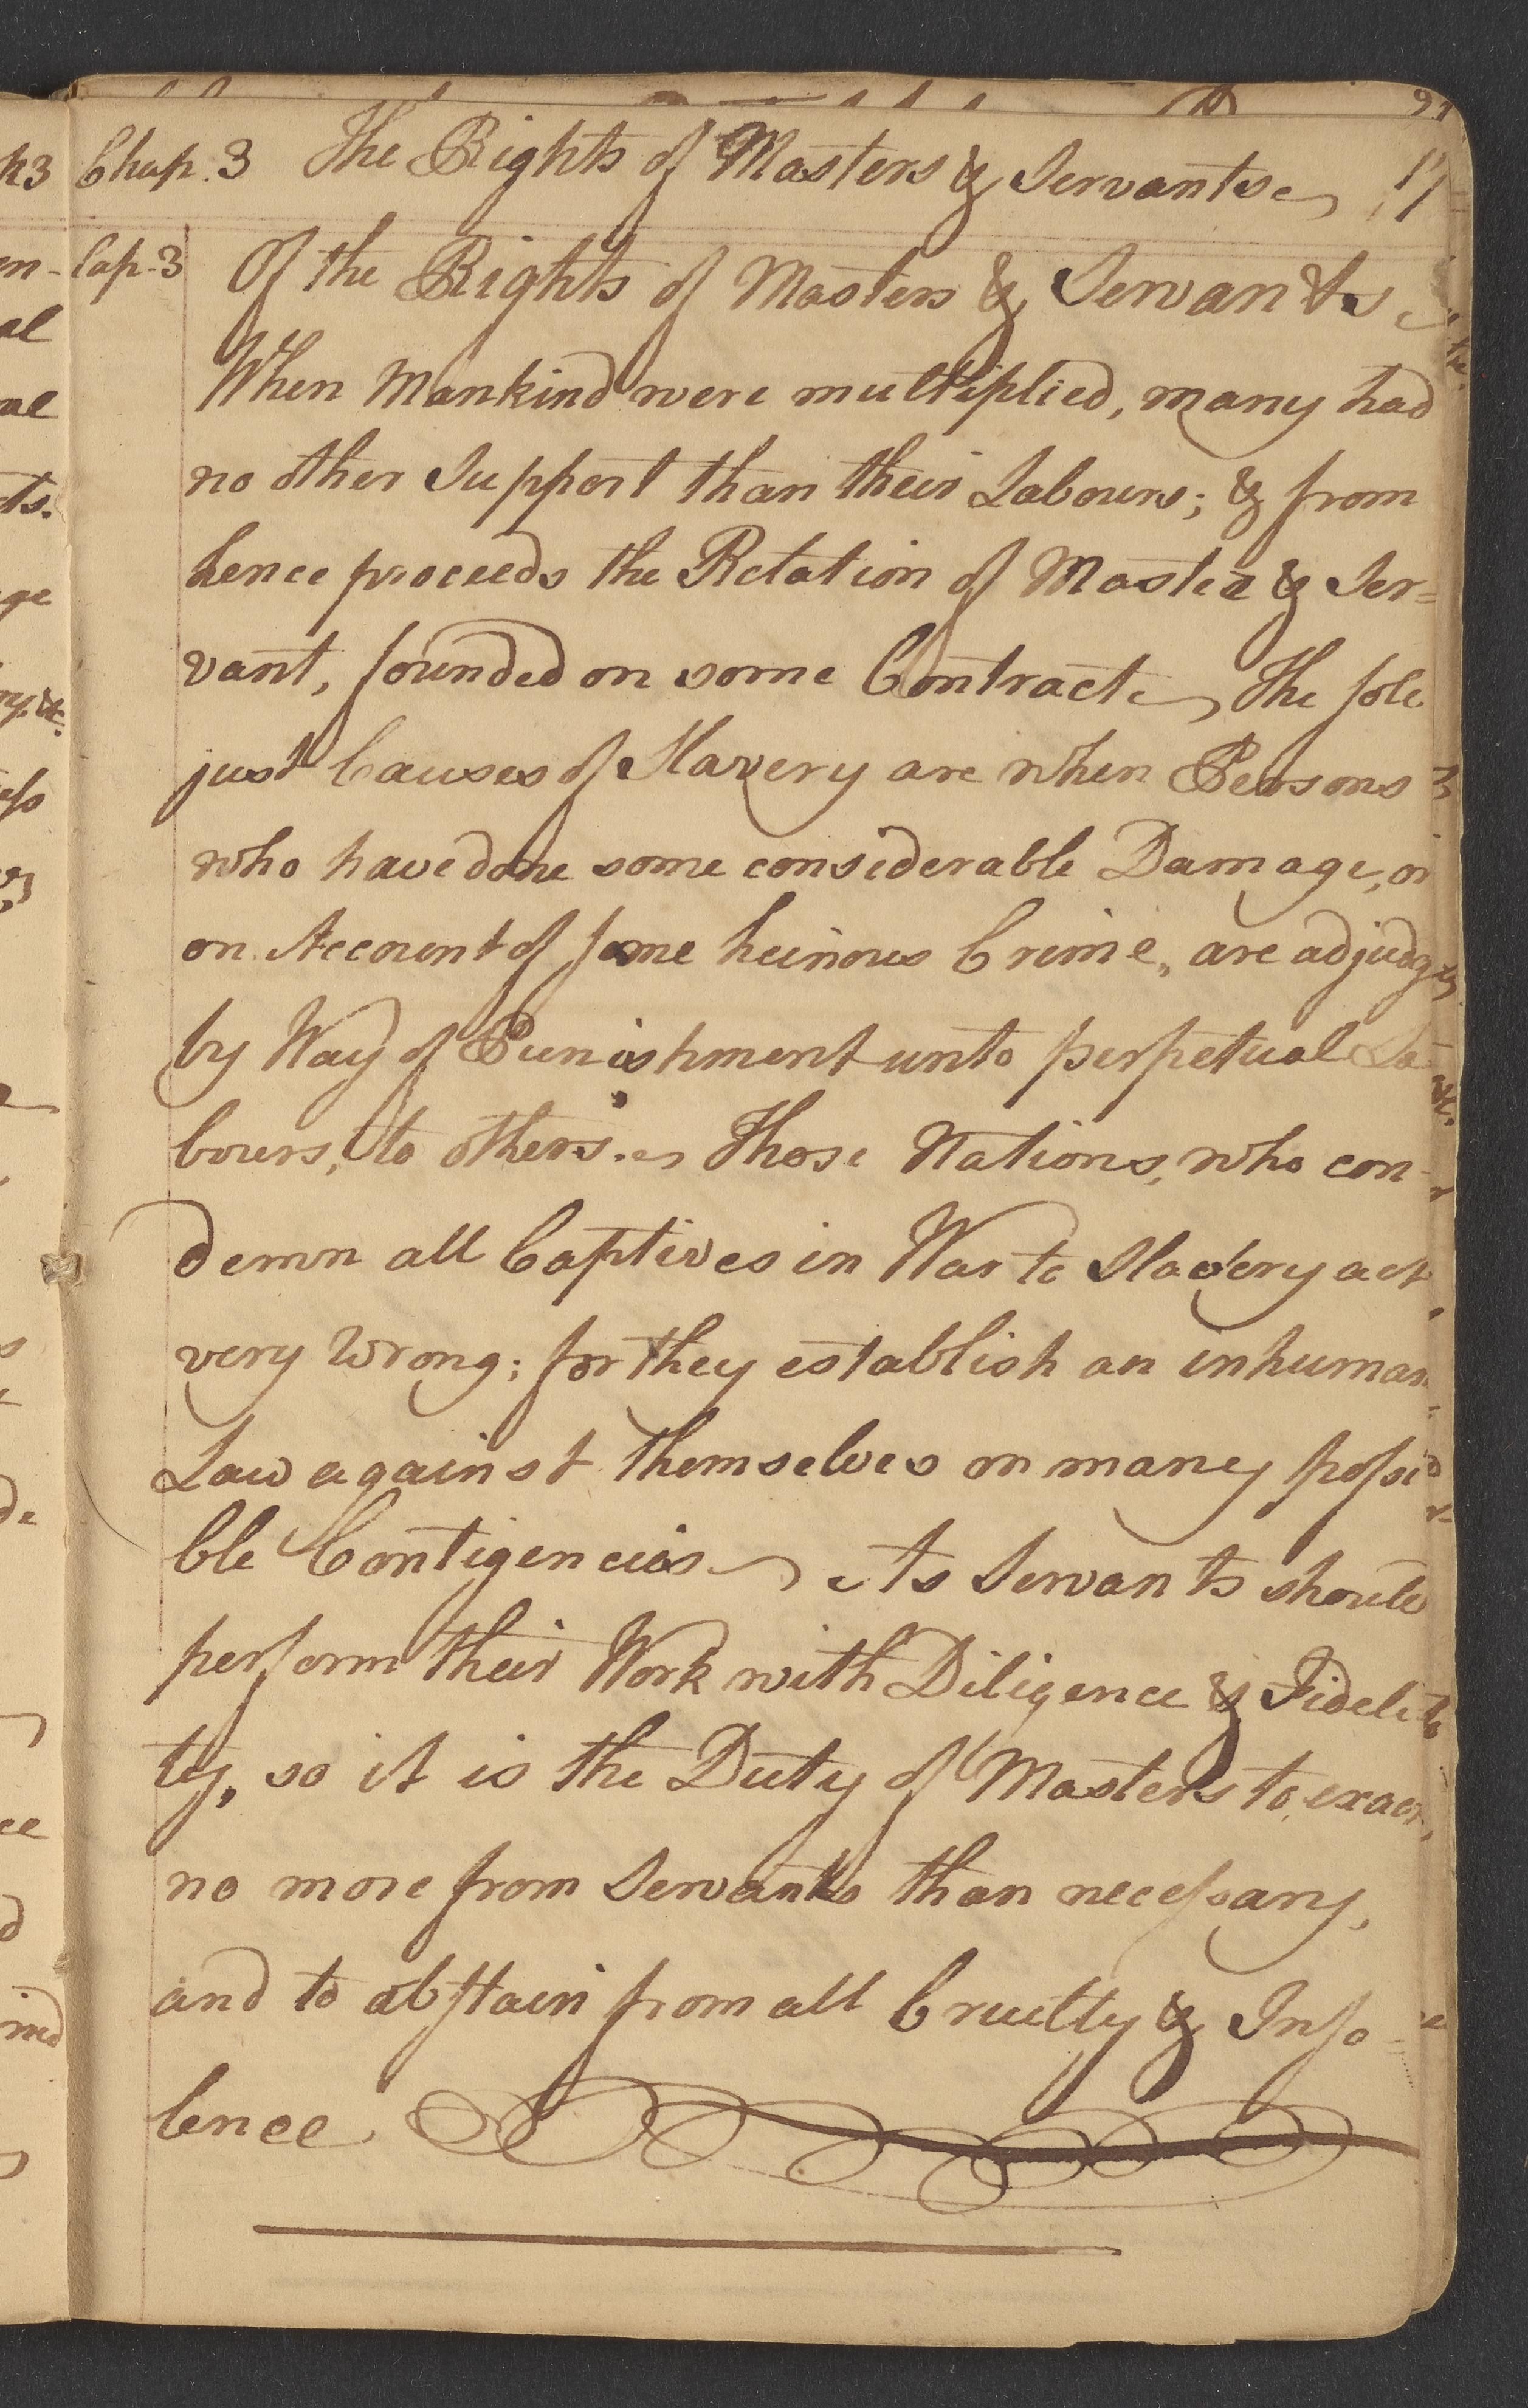 Chap. 3 The Rights of Masters & Servants
Cap. 3 Of the Rights of Masters & Servants
When Mankind were multiplied, many had
no other Support than their Labours; & from
hence proceeds the Relation of Master & Ser=
vant, founded on some Contract The sole
just Causes of Slavery are when Persons
who have done some considerable Damage, or
on Account of some heinous Crime, are adjudg
by Way of Punishment unto perpetual La
bours, to others. Those Nations, who con-
demn all Captives in War to Slavery act
very wrong; for they establish an inhuman
Law against themselves on many possi
ble Contigencies As Servants should
perform their Work with Diligence & Fideli
ty, so it is the Duty of Masters to exact
no more from Servants than necessary,
and to abstain from all Cruelty & Inso-
lence